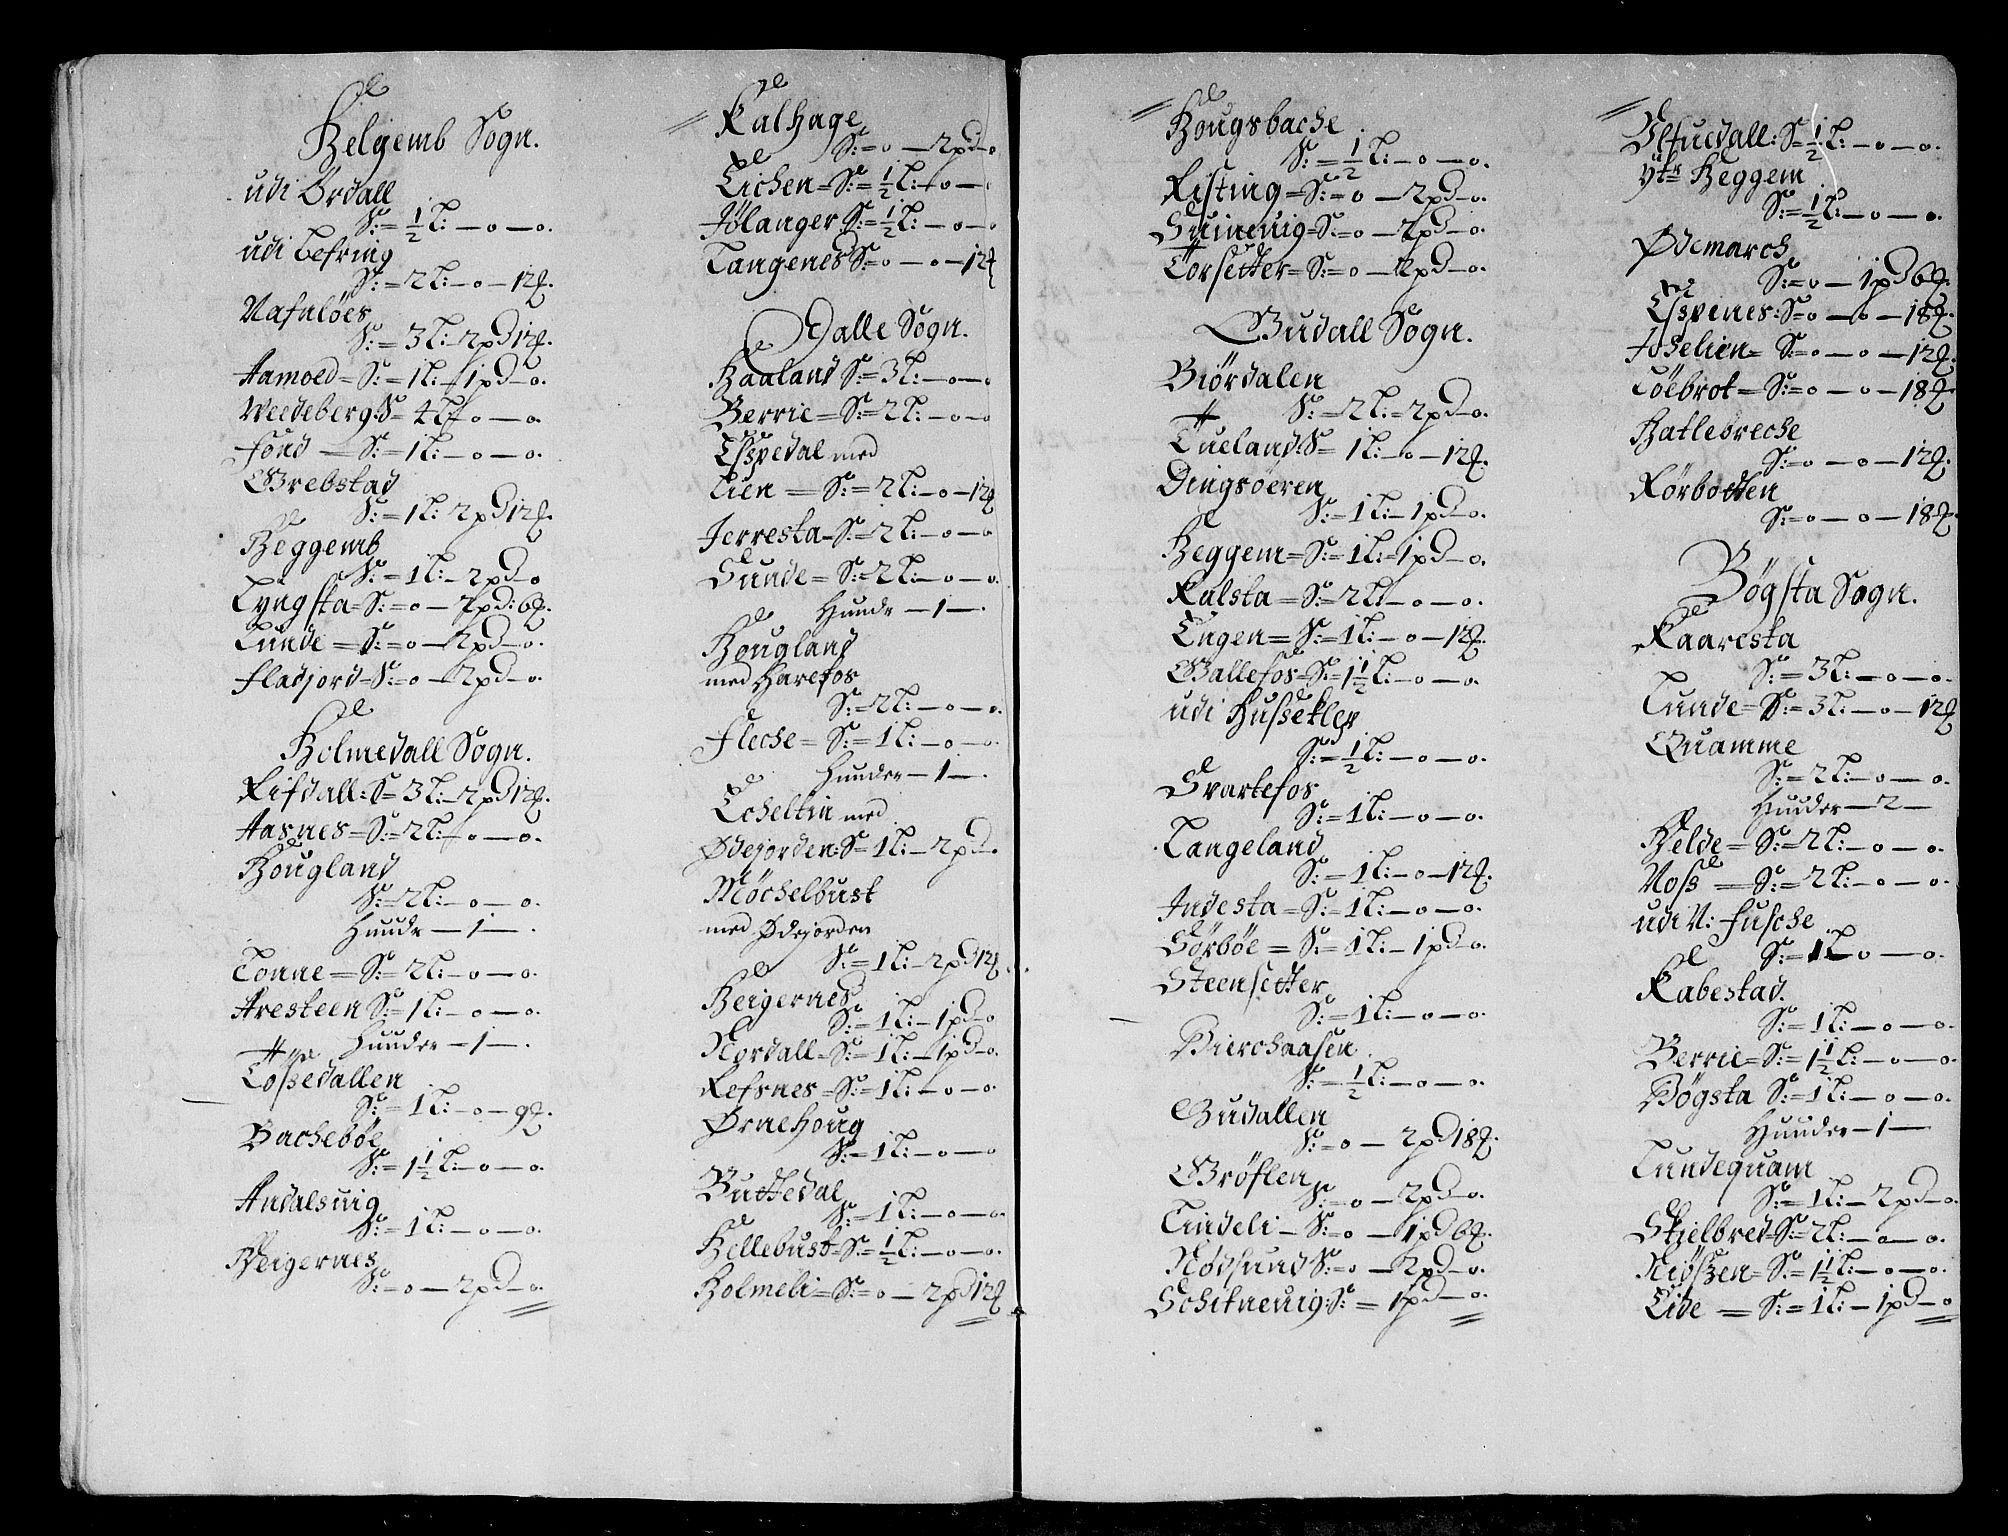 Helgemb Sogn.
udi Ørdall
S: = ½ L: — o — o.
udi Tefring
S: = 2 L: — o — 12 ß.
Nafnløes
S: = 3 L: — 2 pd 12 ß.
Aamoed = S: = 1 L: — 1 pd — o.
Weedeberg: S = 4 L: o — o.
Fønd — S: = 1 L: — o — o.
Grebstad
S: = 1 L: 2 pd 12 ß.
Heggemb
S: = 1 L: — 2 pd — o
Lyngsta = S: = o — 2 pd: 6 ß.
Tunde = S: = o — 2 pd — o.
Fladjord = S: = o — 2 pd — o.
Holmedall Sogn.
Rifdall: S = 3 L: — 2 pd 12 ß.
Aasnes = S: = 2 L: — o — o.
Hougland
S: = 2 L: — o — o.
Hundr — 1 — .
Tonne = S: = 2 L: — o — o.
Aresteen S: = 1 L: — o — o.
Hunder — 1 — .
Tossedallen
S: = 1 L: — o — 9 ß.
Bachebøe
S: = 1½ L: — o — o.
Andalsuig
S: = 1 L: — o — o.
Heigernes
S: = o — 2 pd — o.
Kalhage
S: = o — 2 pd — o
Eichen = S: = ½ L: — o —
Jølanger S: = ½ L: — o — o
Langenes S: = o — o — 12 ß
Dalle Sogn.
Haaland S: = 3 L: — o — o
Berrie = S: = 2 L: — o — o
Esspedal med
Lien = S: = 2 L: — o — 12 ß
Jerresta — S: = 2 L: — o — o
Sunde = S: = 2 L: — o — o.
Hundr — 1 — .
Hougland
med Harefos
S: = 2 L: — o — o.
Fleche = S: = 1 L: — o — o.
Hunder — 1 — .
Echeltin med
Ødejorden: S = 1 L: — 2 pd — .
Møchelbust
med Ødejorden
S: = 1 L: — 2 pd 12 ß
Heigernes
S: = 1 L: — 1 pd — o
Nordall = S: = 1 L: — 1 pd — o.
Refsnes = S: = 1 L: — o — o.
Ørnehoug
S: = 1 L: — o — o
Buttedal
S: = 1 L: — o — o.
Hellebust = S: = ½ L: — o — o.
Holmeli = S: = o — 2 pd 12 ß
Hougsbache
S: = ½ L: — o — o.
Risting = S: = o — 2 pd — o.
Suineuig = S: = o — 2 pd — o.
Torsetter = S: = o — 2 pd — o.
Gudall Sogn.
Biørdalen
S: = 2 L: = 2 pd — o.
Tueland: S = 1 L: — o — 12 ß.
Dingsøeren
S: = 1 L: — 1 pd — o.
Heggem = S: = 1 L: = 1 pd — o.
Kalsta = S: = 2 L: — o — o.
Engen = S: = 1 L: — o — 12 ß.
Gallefos = S: = 1½ L: — o — o.
udi Hussetler
S: = ½ L: — o — o.
Svartefos
S: = 1 L: — o — o.
Langeland
S: = 1 L: — o — 12 ß.
Indesta = S: = 1 L: — o — o.
Sørbøe = S: = 1 L: — 1 pd — o.
Steensetter
S: = 1 L: — o — o.
Bierchaasen
S: = ½ L: — o — o.
Gudallen
S: = o — 2 pd 18 ß.
Grøflen
S: = o — 2 pd — o.
Lindeli — S: = o — 1 pd 6 ß.
Nødsund S: = o — 2 pd — o.
Schifneuig: S: = 1 pd — o.
Elfuedall: S = ½ L: — o — o.
Ytr Heggem
S: = ½ L: — o — o.
Ødemarch
S: = o — 1 pd 6 ß.
Esspenes: S = o — o — 18 ß.
Jøhelien = S: = o — o — 12 ß.
Tøebrot = S: = o — o — 18 ß.
Hatlebreche
S: = o — o — 12 ß.
Rørbotten
S: = o — o — 18 ß.
Bøgsta Sogn.
Kaaresta
S: = 3 L: — o — o.
Tunde = S: = 3 L: — o — 12 ß
Quamme
S: = 2 L: — o — o.
Hunder — 2 —
Helde = S: = 2 L: — o — o.
Noss = S: = 2 L: — o — o.
udi N: Fusche
S: = 1 L: o — o.
Rabestad.
S: = 1 L: — o — o.
Berrie = S: = 1½ L: — o — o.
Bøgsta S: = 1 L: — o — o.
Hunder — 1 —
Tundequam
S: = 1 L: — 2 pd — o.
Skielbred = S: = 2 L: — o — o.
Midszen = S: = 1½ L: — o — o.
Eide = S: = 1 L: — 1 pd — o